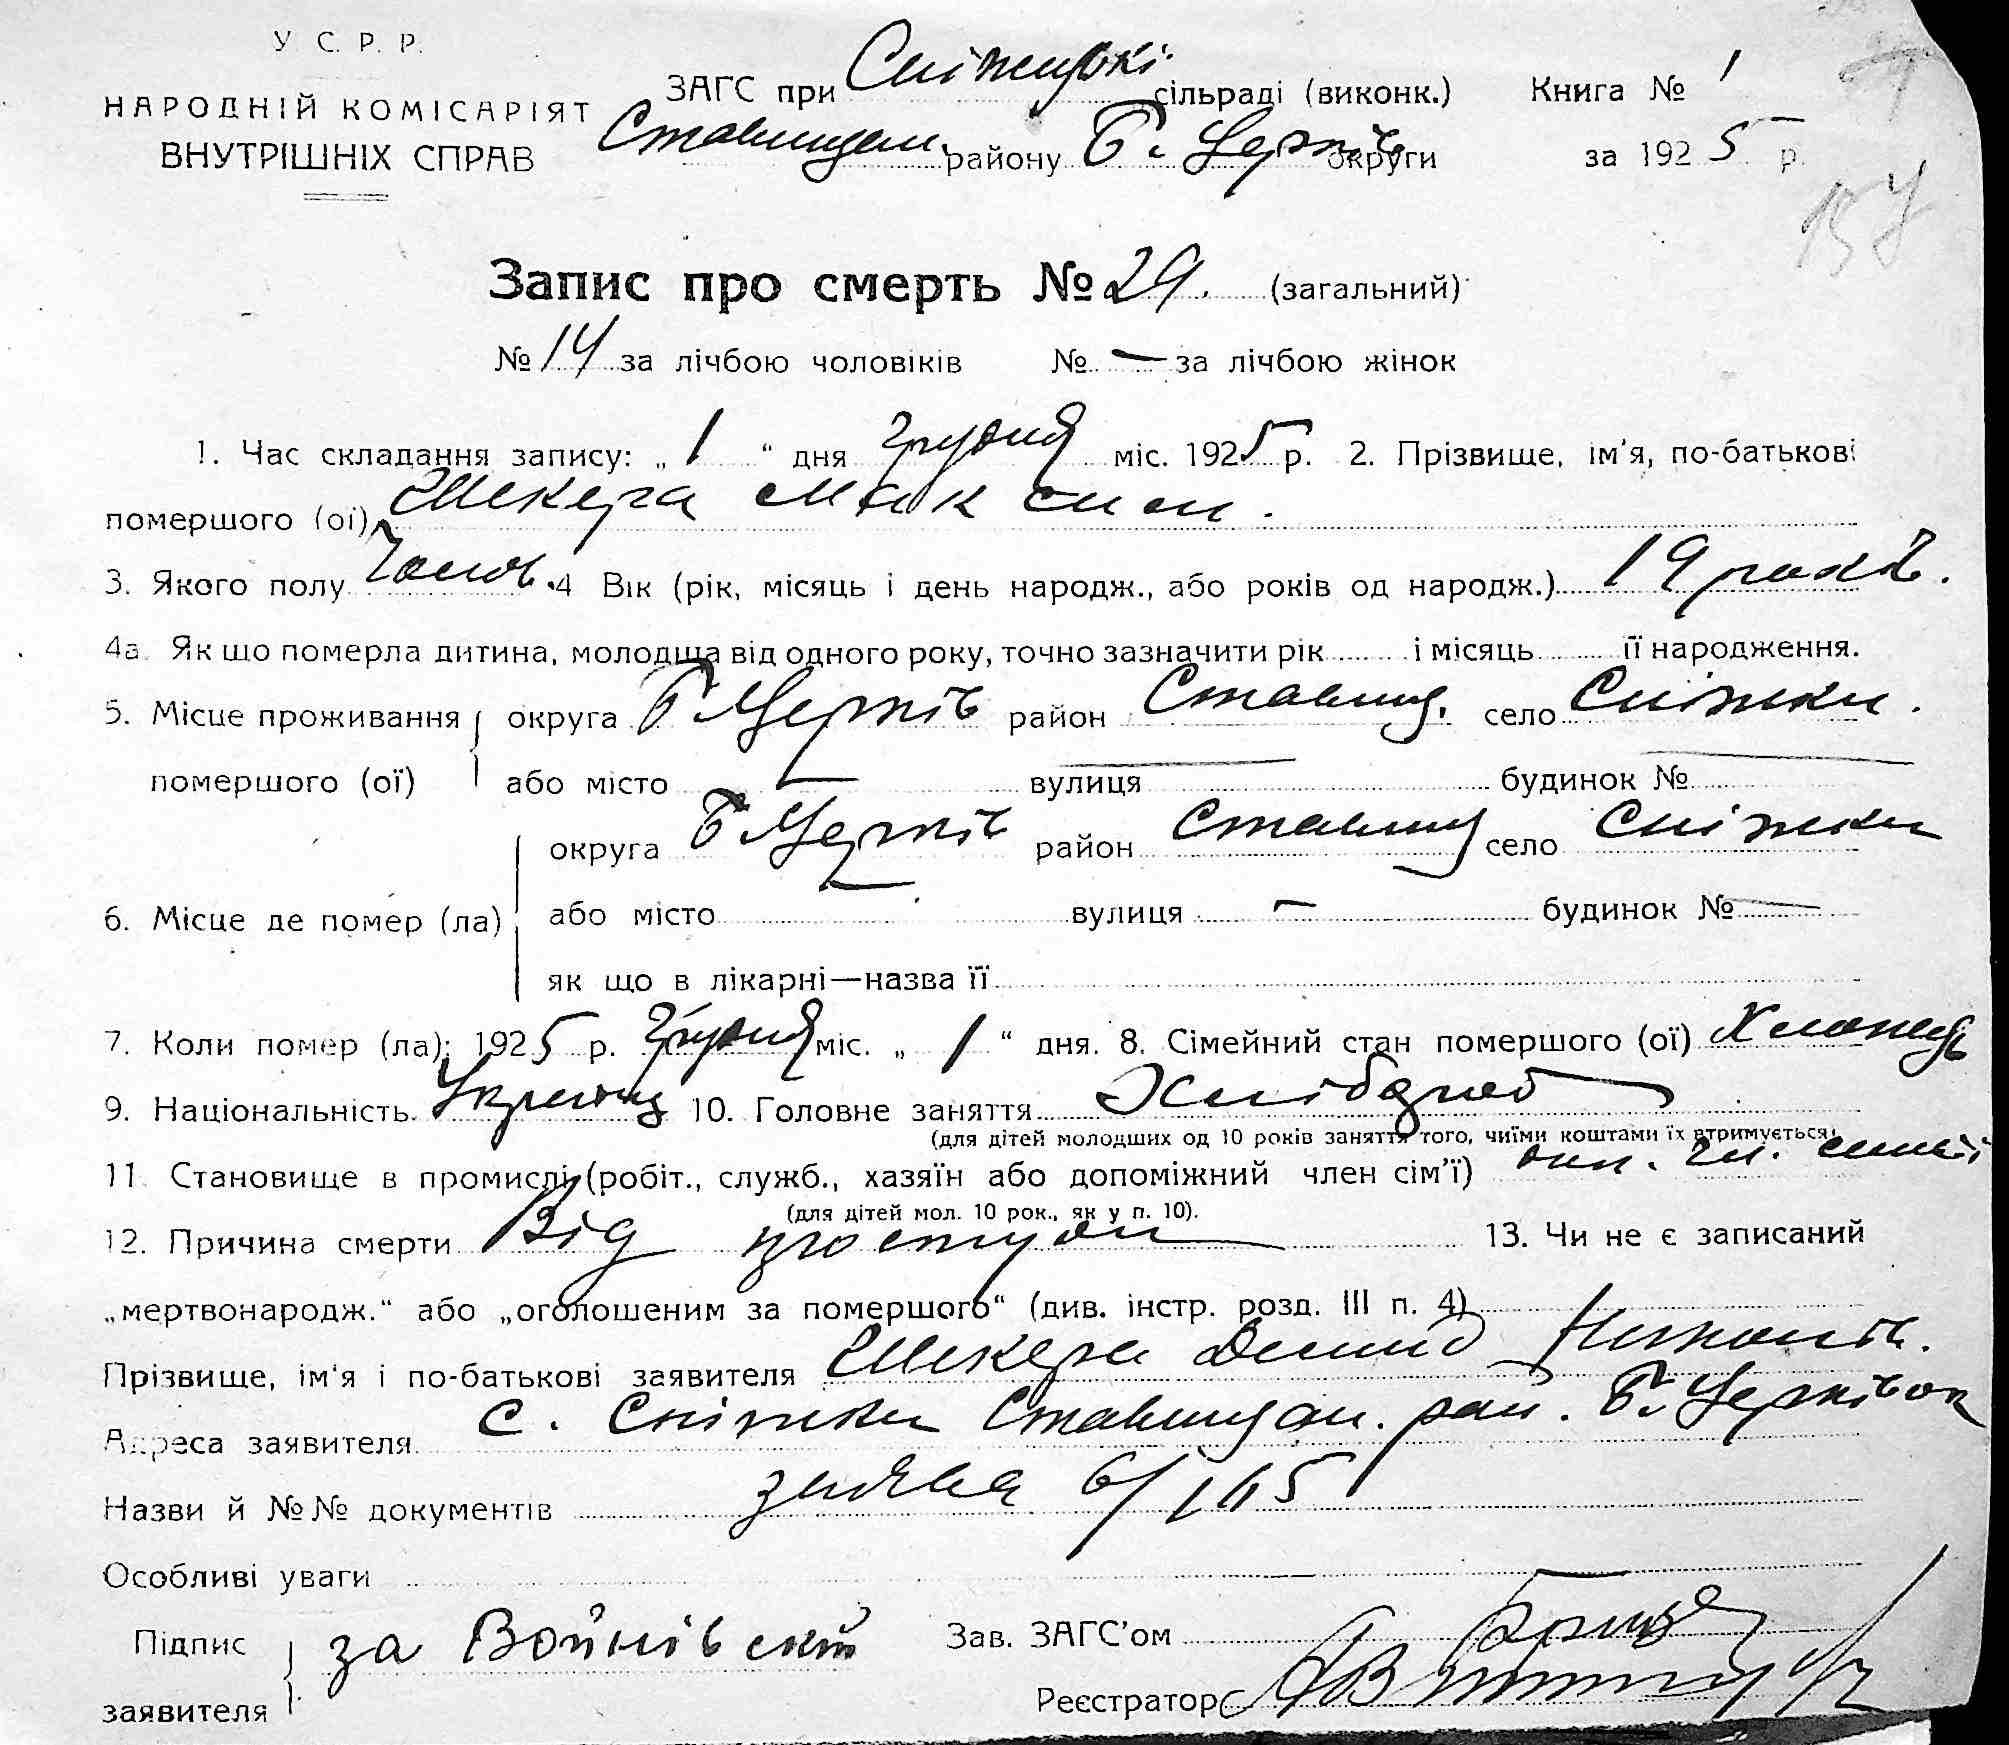 У. С. Р. Р.
НАРОДНІЙ КОМІСАРІЯТ
ВНУТРІШНІХ СПРАВ
ЗАГС при Сніжкі сільраді (виконк.) Книга № 1
Ставищан. району Б. Церків округи за 1925 р.
157
Запис про смерть № 29. (загальний)
№ 14 за лічбою чоловіків № — за лічбою жінок
1. Час складання запису: „ 1 “ дня грудня міс. 1925 р. 2. Прізвище, ім'я, по-батькові
помершого (ої) Шкера Максим.
3. Якого полу Чолов. 4 Вік (рік, місяць і день народж., або років од народж.) 19 років.
4а. Як що померла дитина, молодща від одного року, точно зазначити рік і місяць її народження.
5. Місце проживання округа Б Церків район Ставищ. село Сніжки.
помершого (ої) або місто — вулиця — будинок № —
округа Б Церків район Ставищ село Сніжки
6. Місце де помер (ла) або місто вулиця — будинок № —
як що в лікарні—назва її
7. Коли помер (ла): 1925 р. Грудня міс. „ 1 “ дня. 8. Сімейний стан помершого (ої) Хлопець
9. Національність Украінец 10. Головне заняття Хлібороб
(для дітей молодших од 10 років заняття того, чиїми коштами їх втримується)
11. Становище в промислі (робіт., служб., хазяїн або допоміжний член сім'ї) чл. сим'ї
(для дітей мол. 10 рок., як у п. 10).
12. Причина смерти Від простуди 13. Чи не є записаний
„мертвонародж.“ або „оголошеним за помершого“ (див. інстр. розд. III п. 4)
Прізвище, ім'я і по-батькові заявителя Шкера Демид
Адреса заявителя с. Сніжки Ставищан. рай. Б. Церків ок
Назви й №№ документів заява 6/165
Особливі уваги
Підпис за Войнівськ Зав. ЗАГС'ом
заявителя Реєстратор